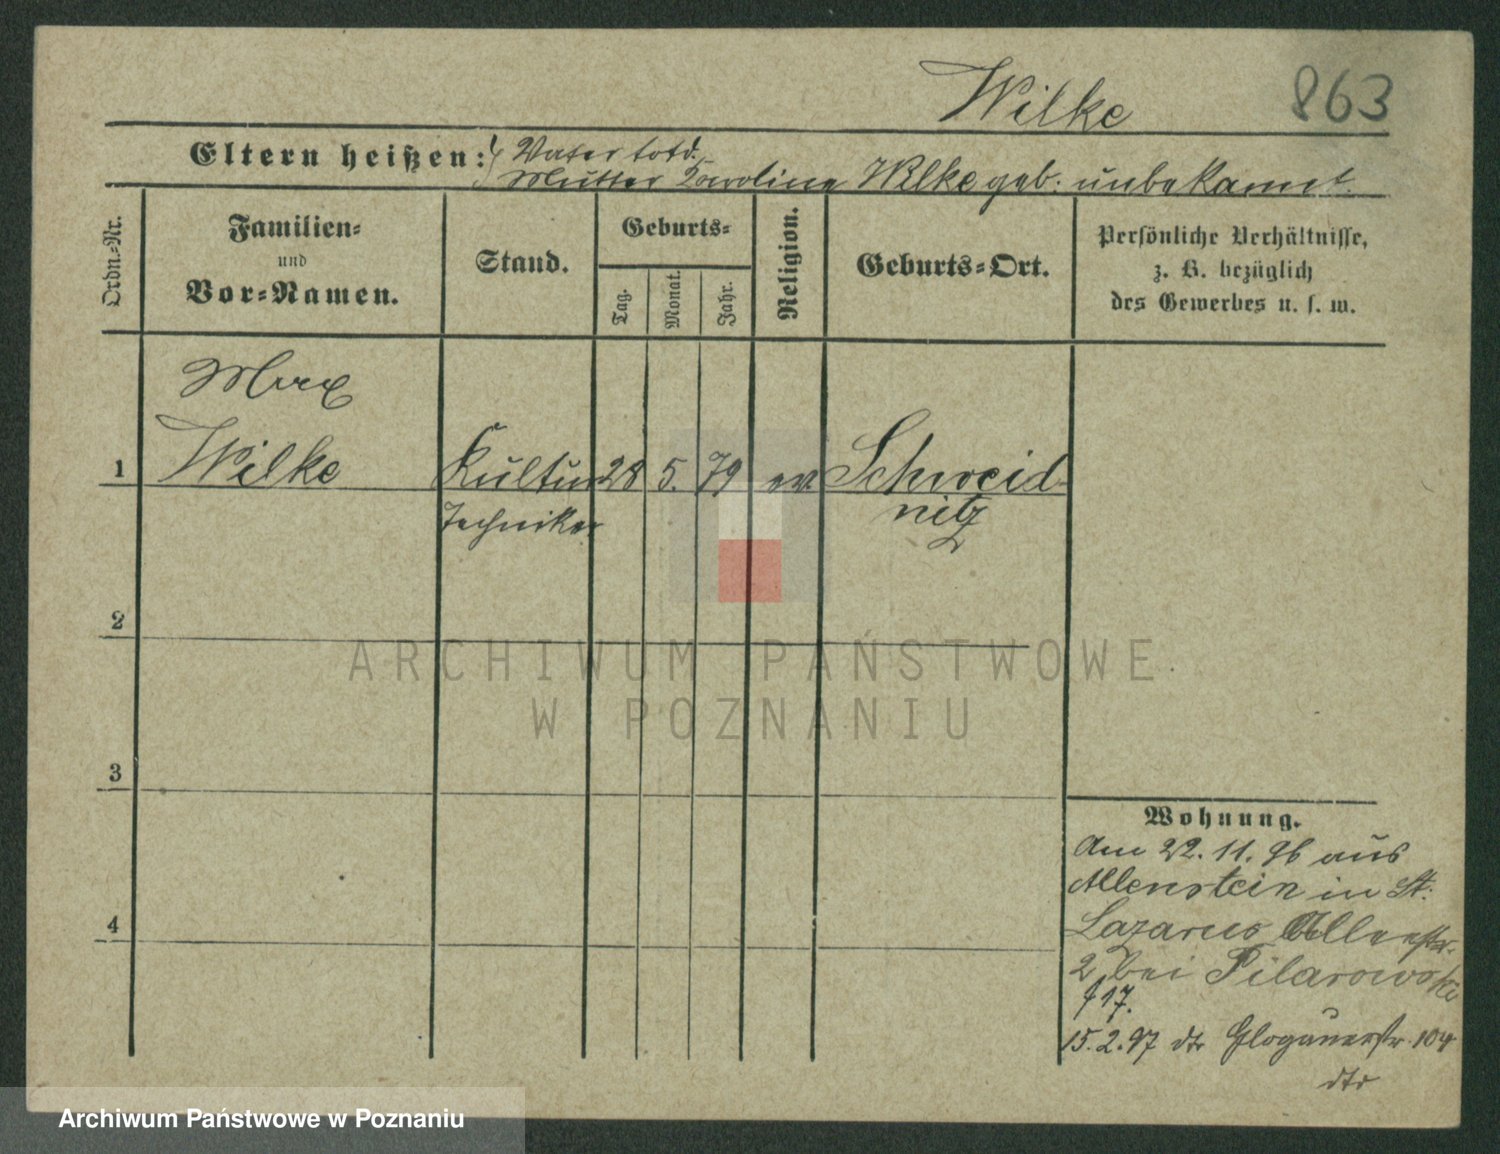 Wilke
863
Eltern heißen: Vater totd.
Mutter Karoline Wilke geb. unbekannt.
Ordn.-Nr.
Familien-
und
Vor-Namen.
Stand.
Geburts-
Tag.
Monat.
Jahr.
Religion.
Geburts-Ort.
Persönliche Verhältnisse,
z. B. bezüglich
des Gewerbes u. s. w.
Max
1 Wilke Kultur 28 5. 79 ev. Schweid-
Techniker nitz
2
3
4
Wohnung.
Am 22.11.96 aus
Allenstein in St.
Lazarus
2 bei Pilarowski
15.2.97 dto Glogauerstr. 104
dto
ARCHIWUM PAŃSTWOWE
W POZNANIU
Archiwum Państwowe w Poznaniu